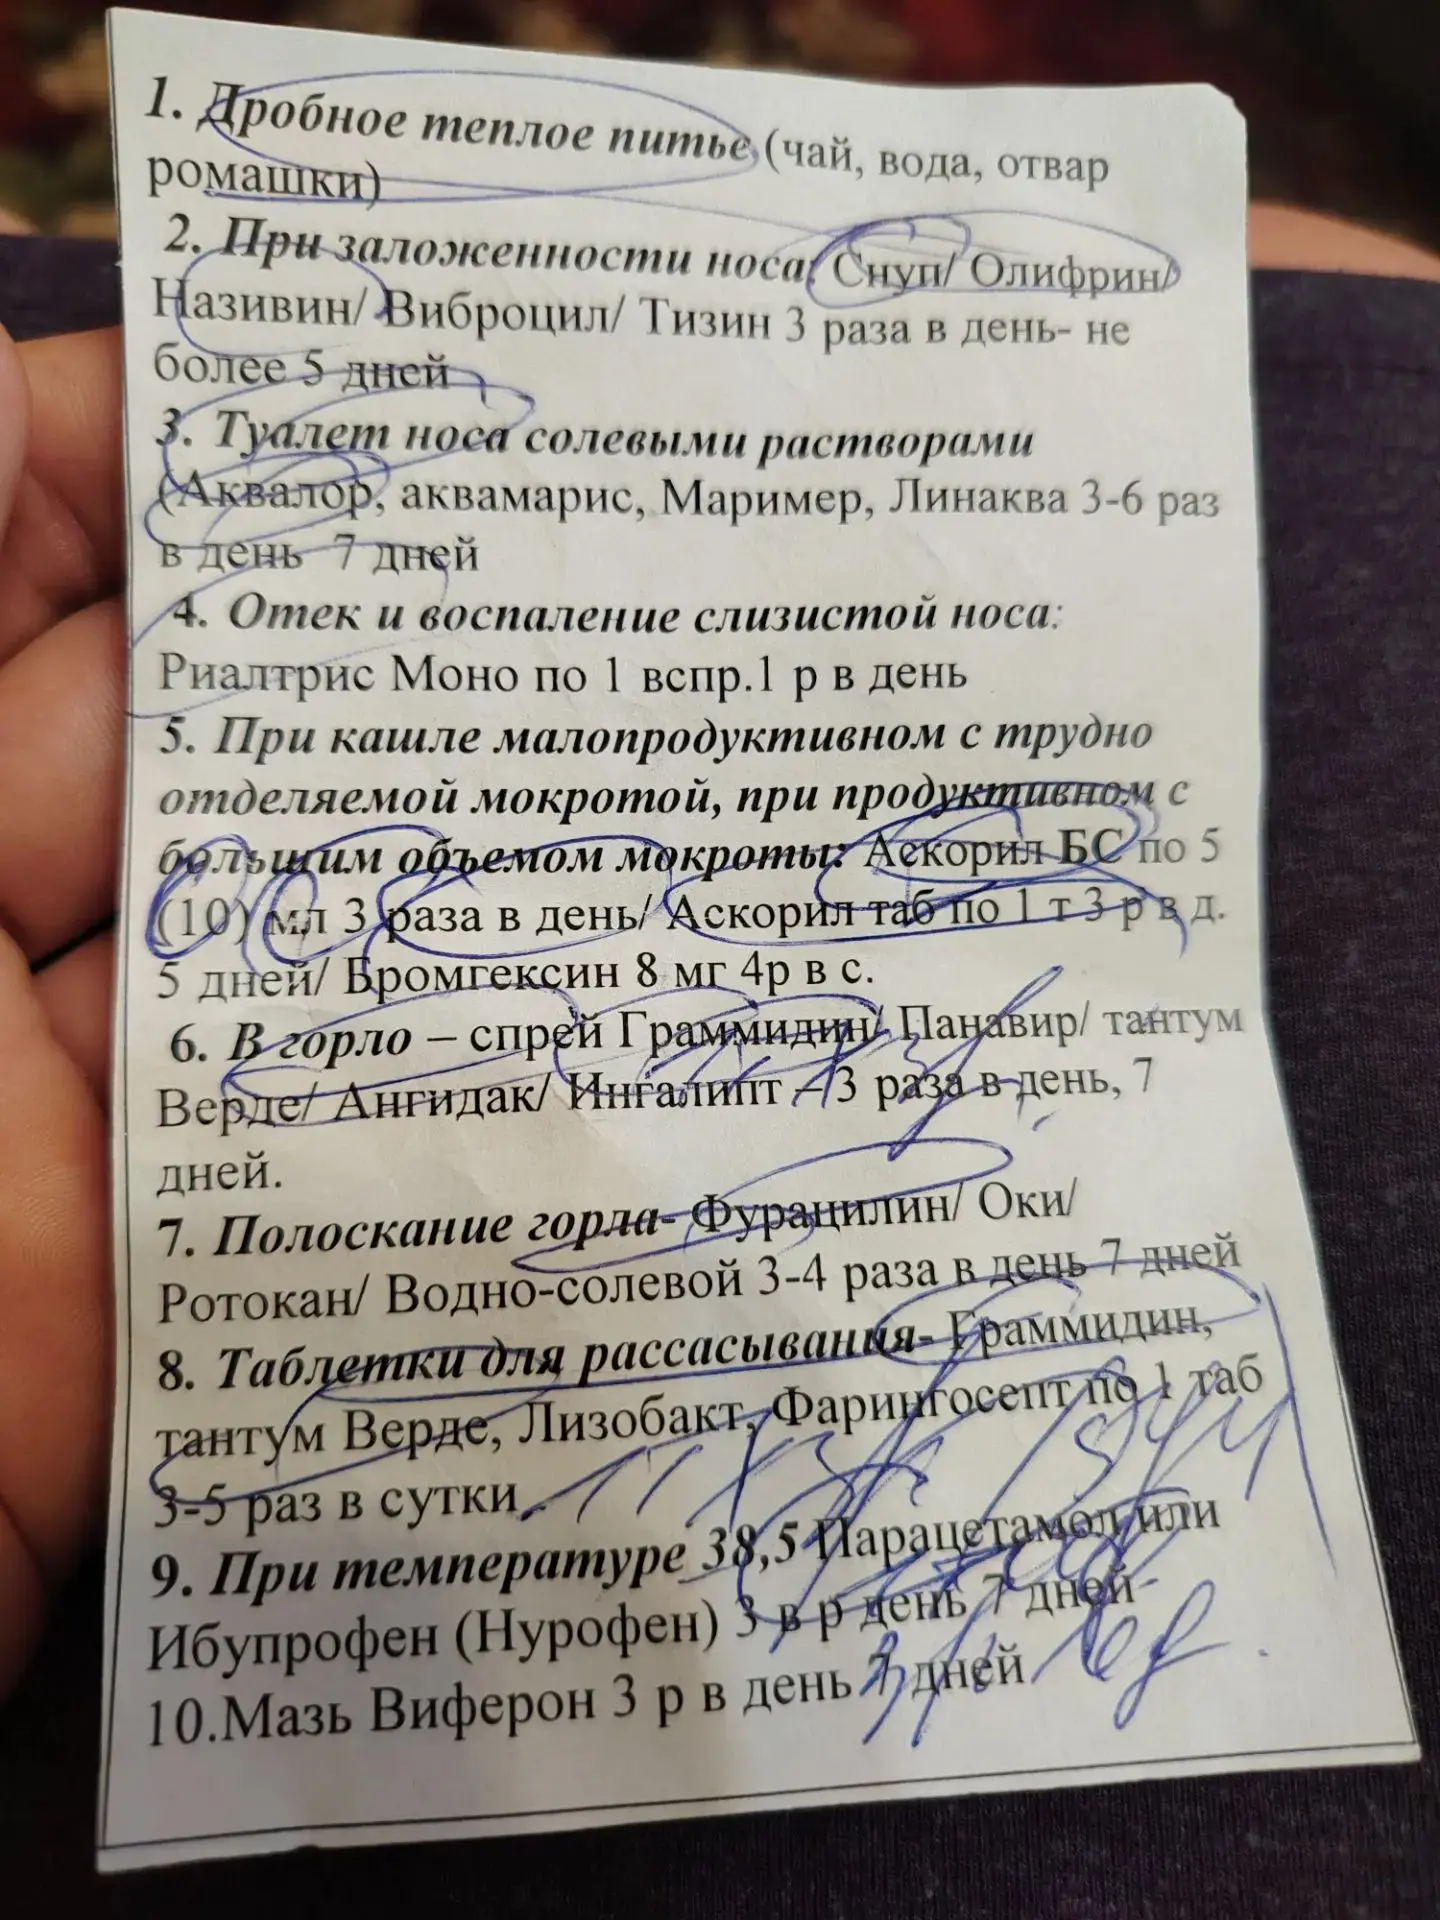 1. Дробное теплое питье (чай, вода, отвар
ромашки)
2. При заложенности носа: Снуп/ Олифрин/
Називин/ Виброцил/ Тизин 3 раза в день- не
более 5 дней
3. Туалет носа солевыми растворами
(Аквалор, аквамарис, Маример, Линаква 3-6 раз
в день 7 дней
4. Отек и воспаление слизистой носа:
Риалтрис Моно по 1 вспр.1 р в день
5. При кашле малопродуктивном с трудно
отделяемой мокротой, при продуктивном с
большим объемом мокроты: Аскорил БС по 5
(10) мл 3 раза в день/ Аскорил таб по 1 т 3 р в д.
5 дней/ Бромгексин 8 мг 4р в с.
6. В горло – спрей Граммидин/ Панавир/ тантум
Верде/ Ангидак/ Ингалипт – 3 раза в день, 7
дней.
7. Полоскание горла- Фурацилин/ Оки/
Ротокан/ Водно-солевой 3-4 раза в день 7 дней
8. Таблетки для рассасывания- Граммидин,
тантум Верде, Лизобакт, Фарингосепт по 1 таб
3-5 раз в сутки
9. При температуре 38,5 Парацетамол или
Ибупрофен (Нурофен) 3 в р день 7 дней
10.Мазь Виферон 3 р в день 7 дней